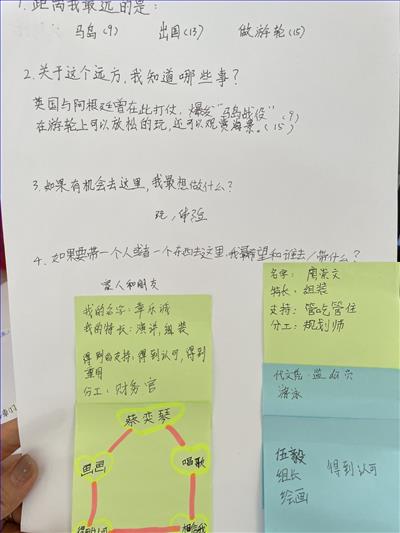 1. 距离我最远的是:
马岛(9) 出国(13) 做游轮(15)
2. 关于这个远方,我知道哪些事?
英国与阿根廷曾在此打仗,爆发"马岛战役"(9)
在游轮上可以放松的玩,还可以观赏海景。(15)
3. 如果有机会去这里,我最想做什么?
玩,体验
4. 如果要带一个人或者一个东西去这里,我最希望和谁去/带什么?
家人和朋友
我的名字:
我的特长:演讲,组装
得到的支持:得到认可,得到
重用
分工:财务官
蔡奕琴
画画
唱歌
相信我
名字:
特长:组装
支持:管吃管住
分工:规划师
游泳
伍毅
组长 得到认可
绘画